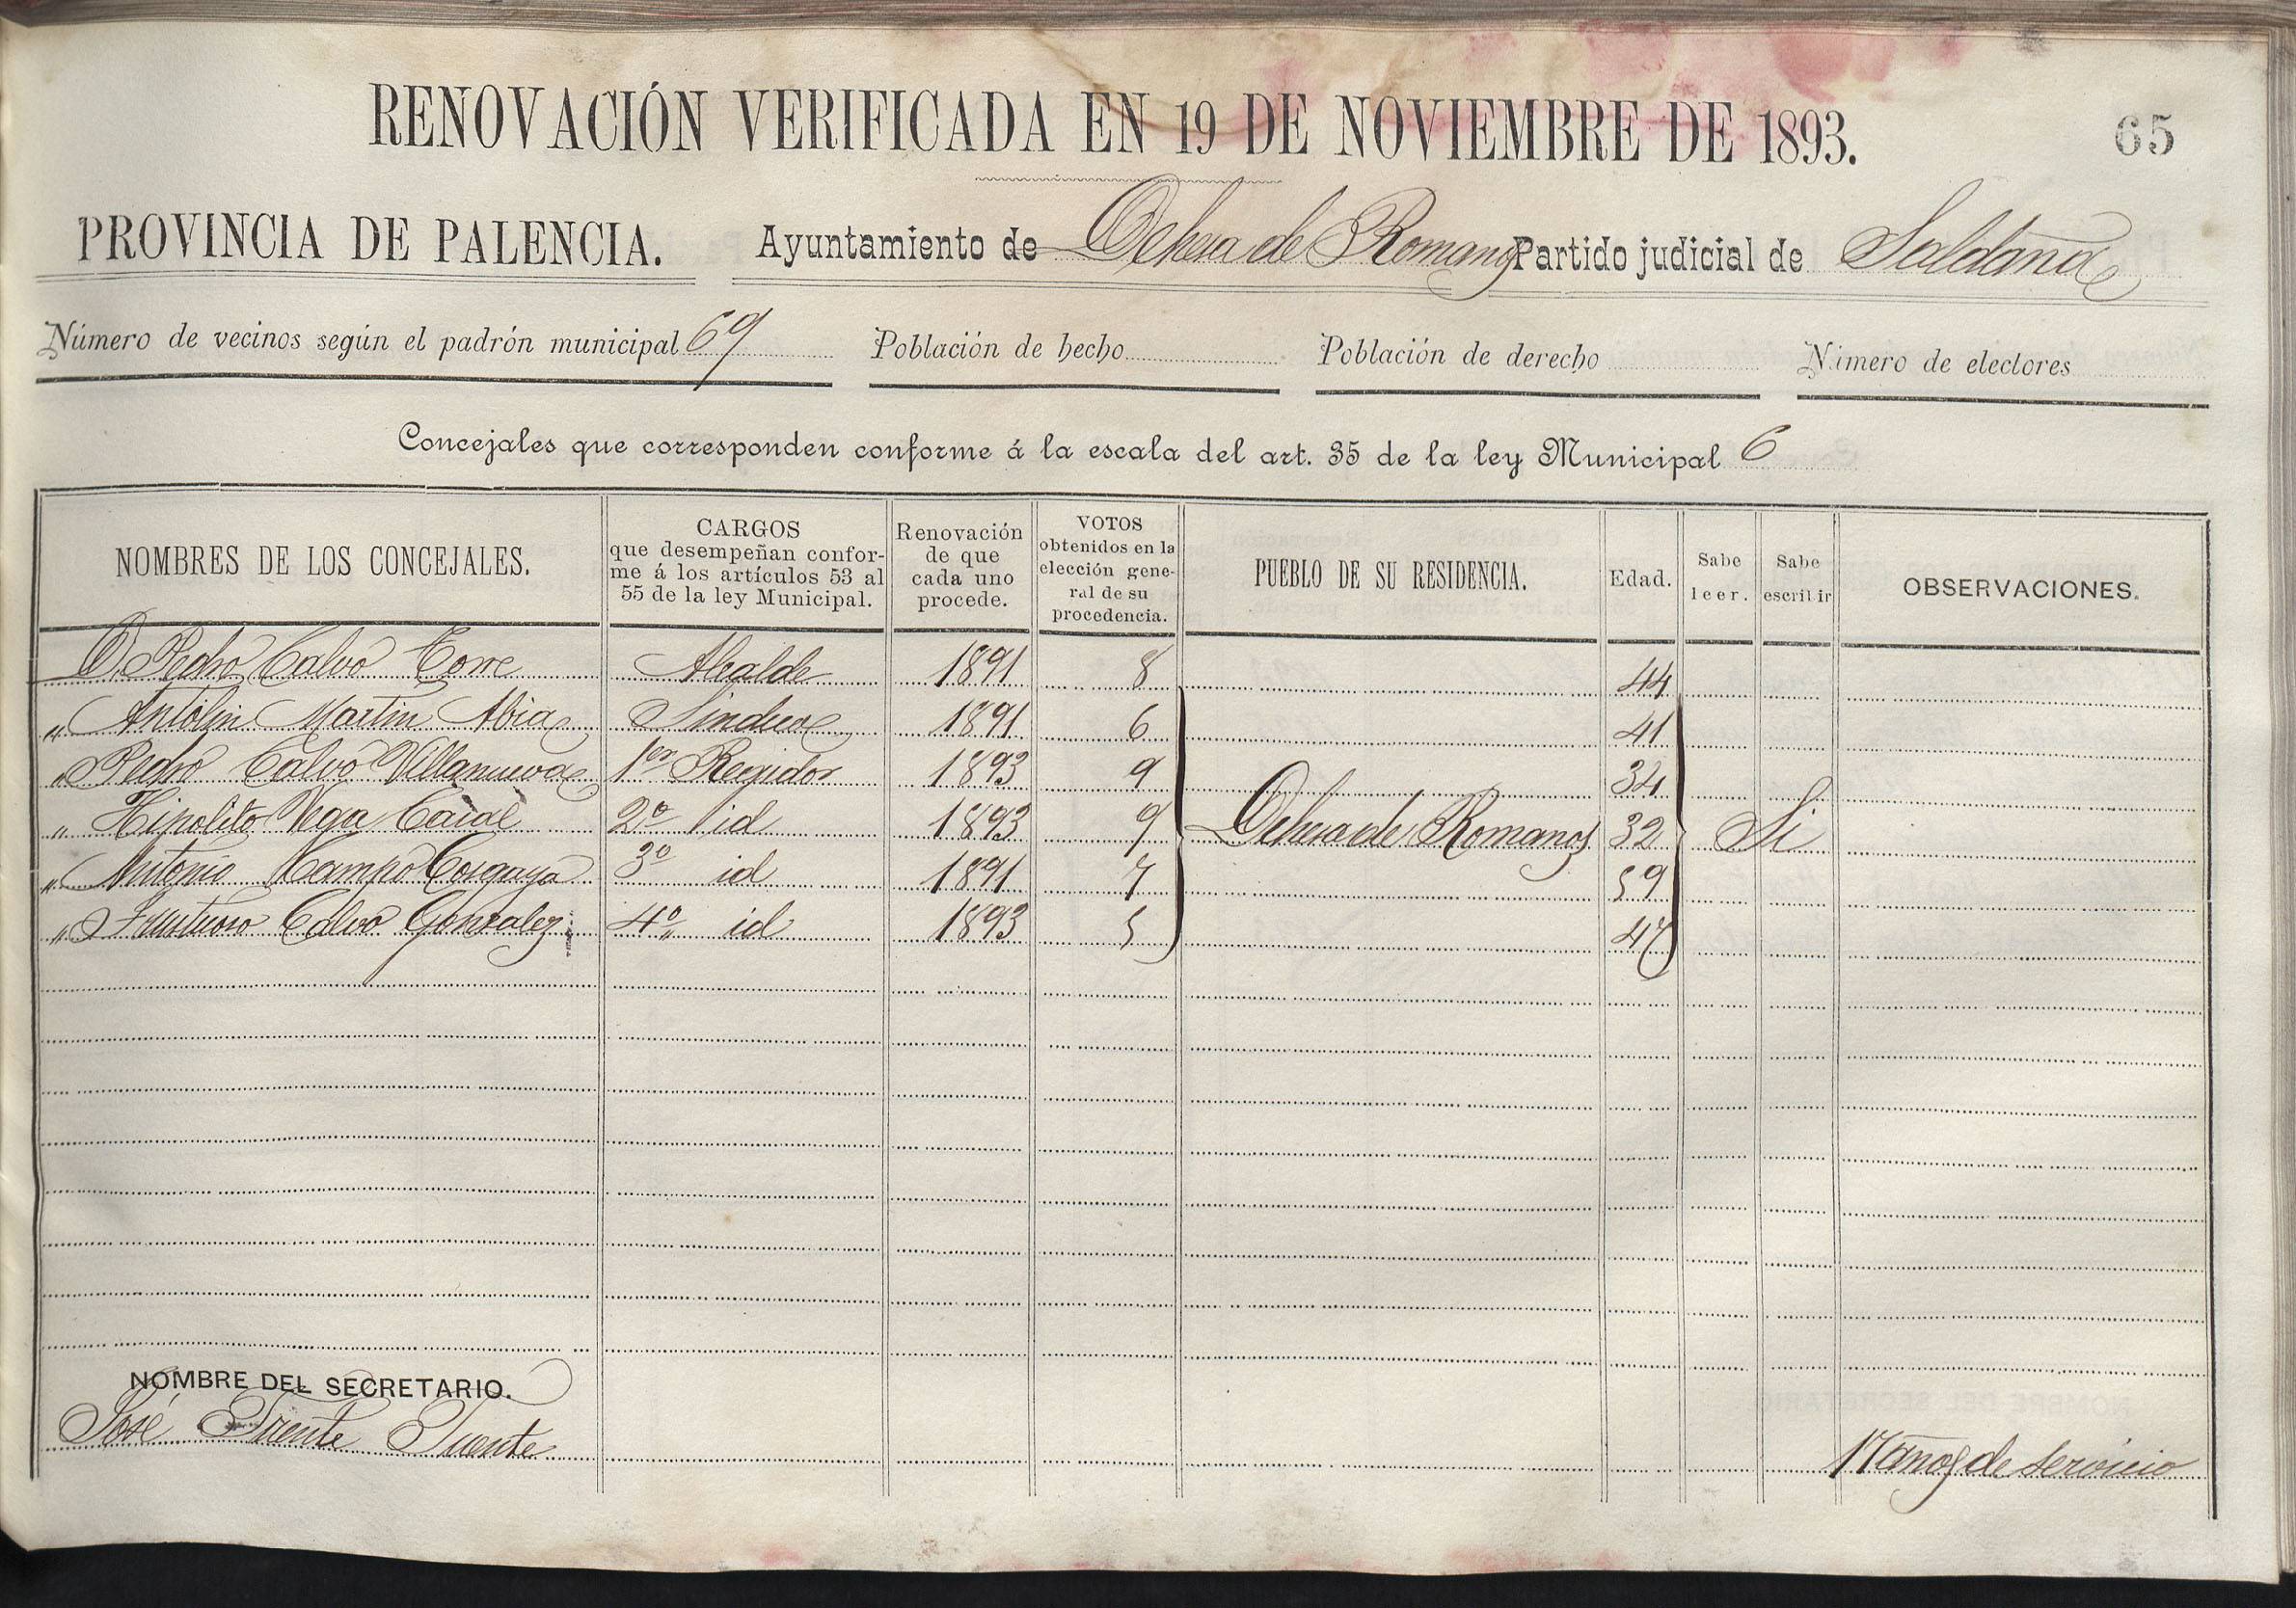 RENOVACIÓN VERIFICADA EN 19 DE NOVIEMBRE DE 1893. 65
PROVINCIA DE PALENCIA. Ayuntamiento de Dehesa de Romanos Partido judicial de Saldaña
Número de vecinos según el padrón municipal 69 Población de hecho Población de derecho Número de electores
Concejales que corresponden conforme á la escala del art. 35 de la ley Municipal 6
NOMBRES DE LOS CONCEJALES. CARGOS que desempeñan conforme á los artículos 53 al 55 de la ley Municipal. Renovación de que cada uno procede. VOTOS obtenidos en la elección general de su procedencia. PUEBLO DE SU RESIDENCIA. Edad. Sabe leer. Sabe escribir OBSERVACIONES.
D. Pedro Calvo Torre Alcalde 1891 8 44
„ Antolin Martin Abia Sindico 1891 6 41
„ Pedro Calvo Villanueva 1er Regidor 1893 9 34
„ Hipolito Vega 2º id 1893 9 Dehesa de Romanos 32 Si
„ Antonio Campo 3º id 1891 7 59
„ Fructuoso Calvo Gonzalez 4º id 1893 5 47
NOMBRE DEL SECRETARIO.
José Fuente Fuente 17 años de servicio